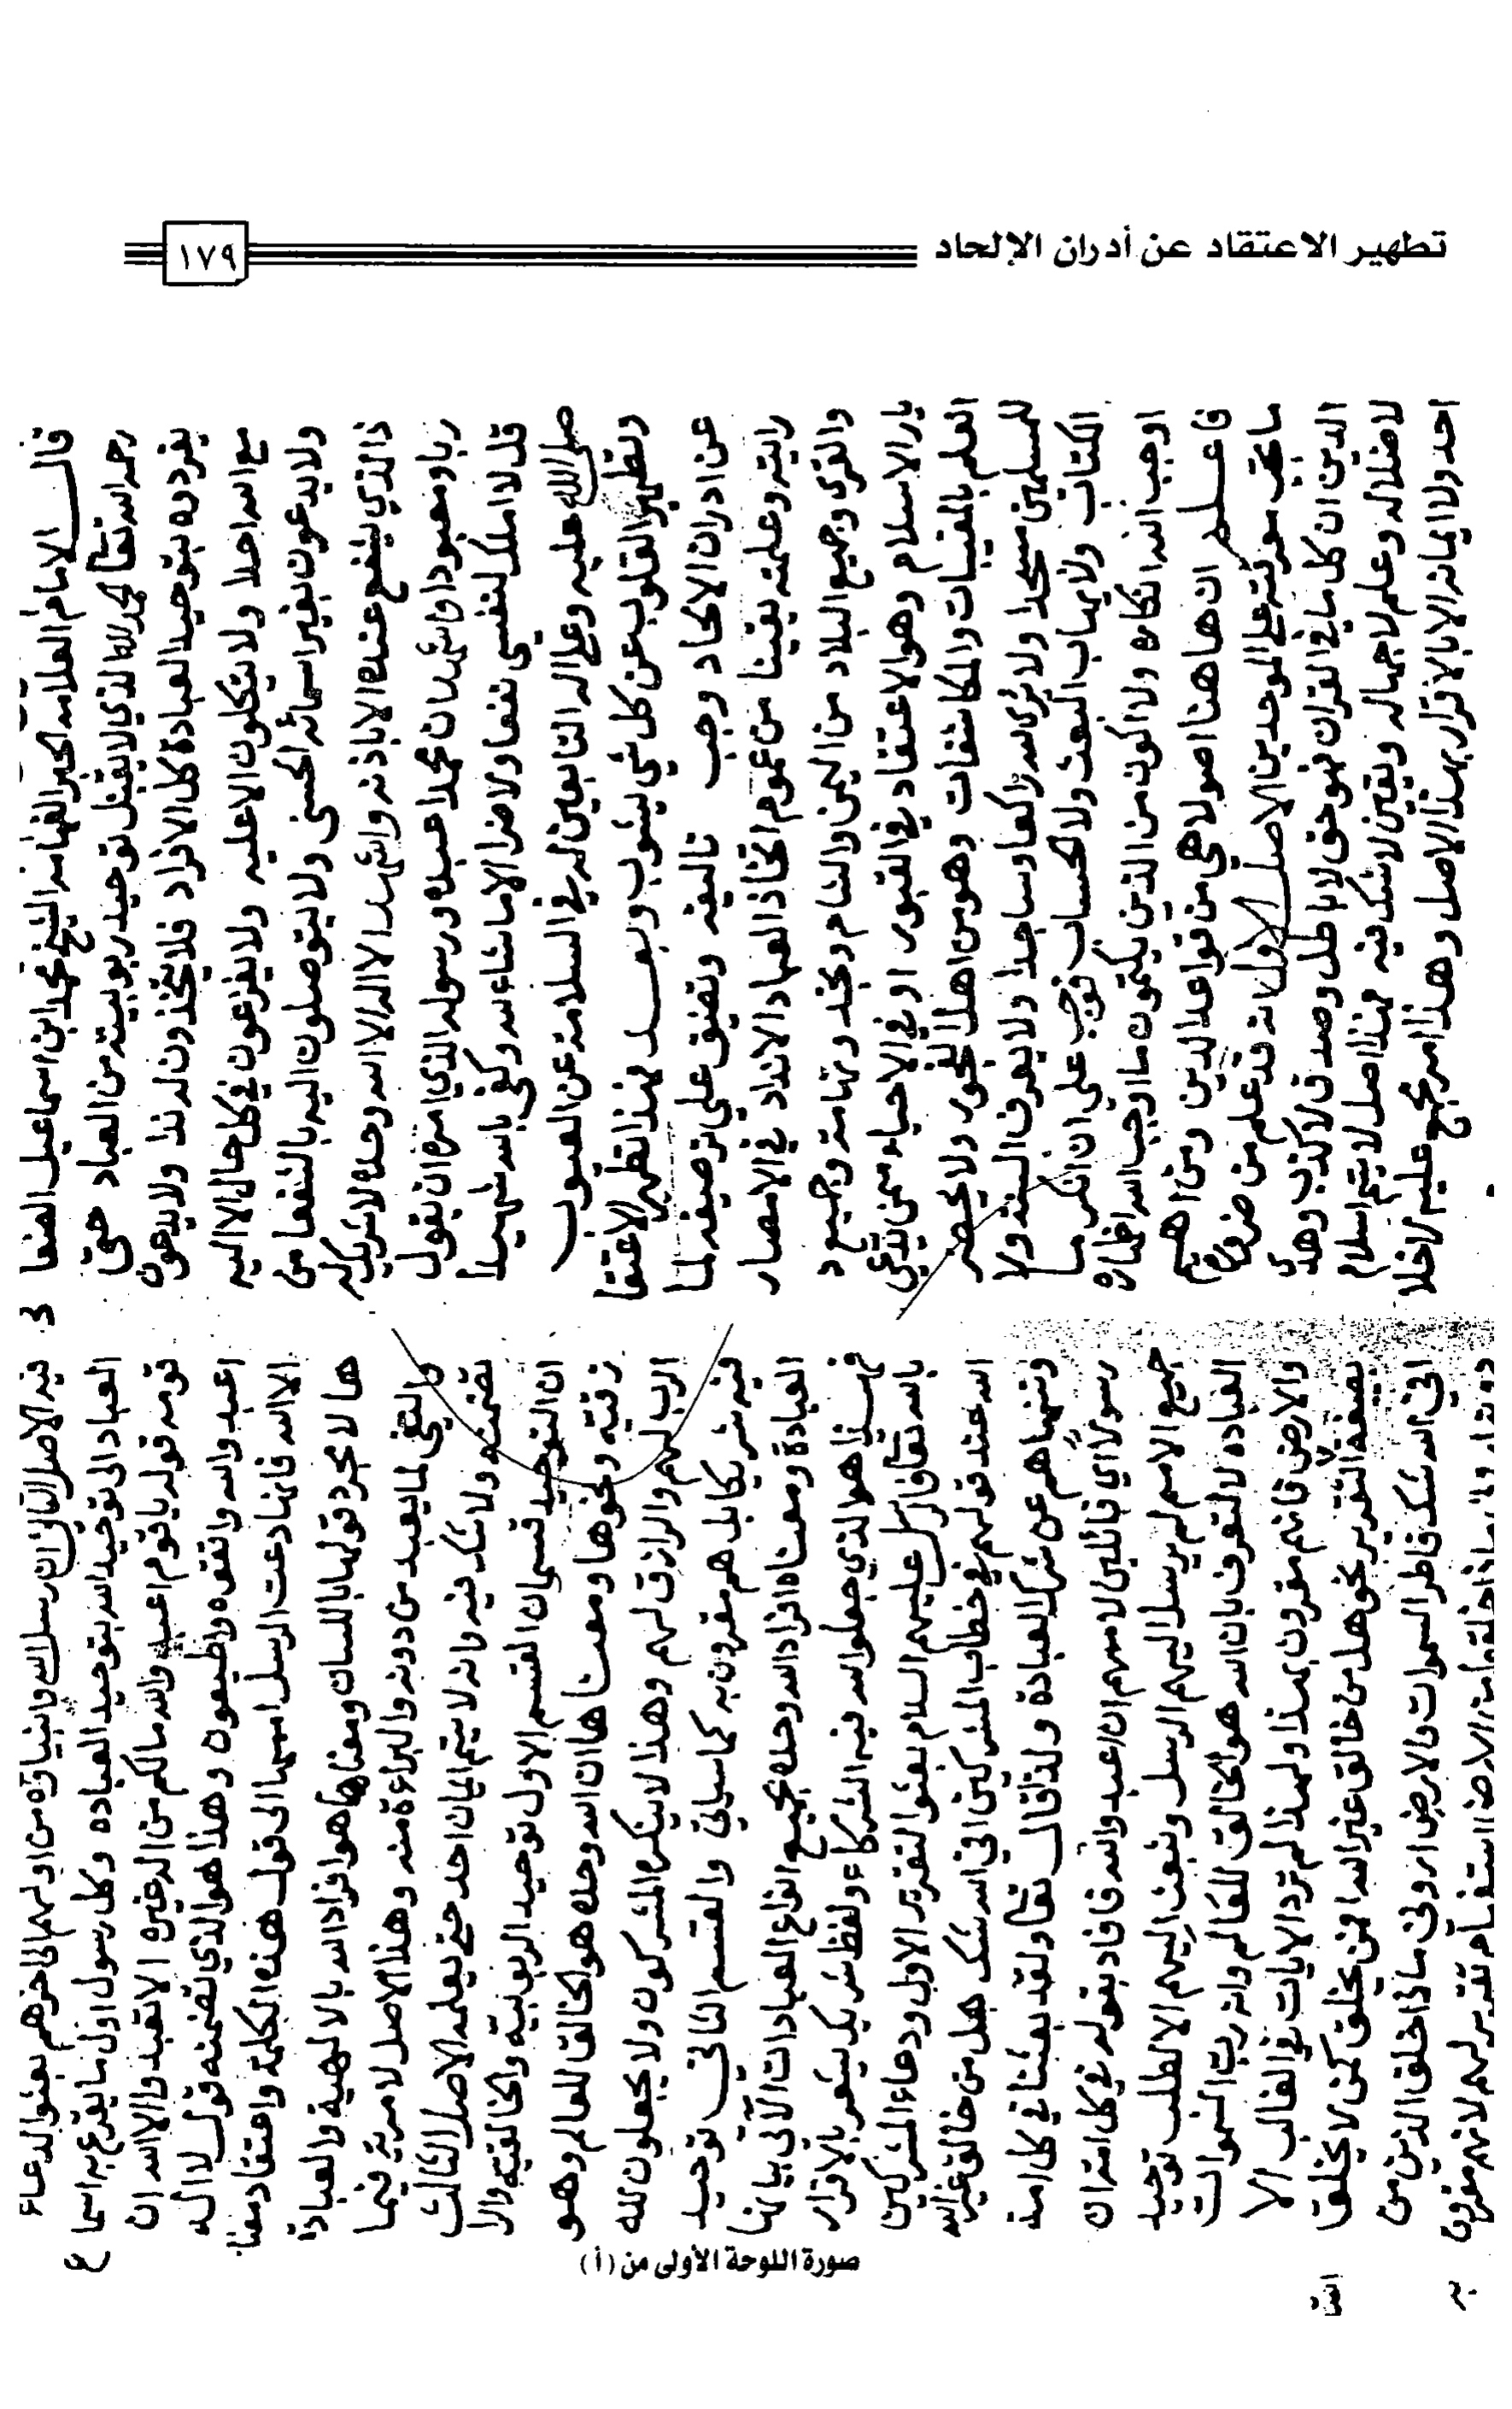 تطهير الاعتقاد عن أدران الإلحاد
١٧٩
قال الامام العلامه الحبر الفهامه الشيخ محمد ابن اسماعيل الصنعا
رحمه الله تعالى الحمد لله الذي لا يقبل توحيد ربوبيته من العباد حتى
يفردوه بتوحيد العبادة كل الافراد فلا يتخذون له ندا ولا يدعون
مع الله احدا ولا يتكلون الا عليه ولا يفزعون في كل حال الا اليه
ولا يدعون بغير اسمائه الحسنى ولا يتوصلون اليه بالشفعا من
ذا الذي يشفع عنده الا باذنه واشهد ان لا اله الا الله وحده لا شريك له
ربا ومعبودا واشهد ان محمدا عبده ورسوله الذي امره ان يقول
قل لا املك لنفسي نفعا ولا ضرا الا ما شاء الله وكفى بالله شهيدا
صلى الله عليه وعلى اله التابعين له في السلامة عن العيوب
وتطهير القلوب عن كل شي يشوب وبعد فهذا تطهير الاعتقا
عن ادران الالحاد وجب تاليفه وتعين علي ترصيفه لما
رايته وعلمته يقينا من عموم اتخاذ العباد الانداد في الامصار
والقرى وجميع البلاد من اليمن والشام ونجد وتهامة وجميع د
يار الاسلام وهو الاعتقاد في القبور او في الاحياء ممن يدعي
العلم بالمغيبات والمكاشفات وهو من اهل الفجور ولا يحضر
للمسلمين مسجدا ولا يرى لله راكعا وساجدا ولا يعرف السنه ولا
الكتاب ولا يهاب البعث ولا الحساب فوجب علي ان انكر ما
اوجب الله انكاره ولا اكون من الذين يكتمون ما اوجب الله اظهاره
فاعلم ان ها هنا اصولا هي من قواعد الدين ومن اهم
ما تجب معرفته على الموحدين الاصل الاول انه قد علم من ضرورة
الدين ان كل ما في القران فهو حق لا باطل وصدق لا كذب وهدى
لا ضلاله وعلم لا جهاله ويقين لا شك فيه فهذا اصل لا يتم اسلام
احد ولا ايمانه الا بالاقرار بهذا الاصل وهذا امر مجمع عليه لا خلا
فيه الاصل الثاني ان رسل الله وانبياؤه من اولهم الى اخرهم بعثوا لدعاء
العباد الى توحيد الله بتوحيد العباده وكل رسول اول ما يقرع به اسما
ع
قومه قوله يا قوم اعبدوا الله مالكم من اله غيره الا تعبدوا الا الله ان
اعبدوا الله واتقوه واطيعون وهذا هو الذي تضمنه قول لا اله
الا الله فانما دعت الرسل اممها الى قول هذه الكلمة واعتقاد معنا
ها لا مجرد قولها باللسان ومعناها هو افراد الله بالالهية والعبادة
والنفي لما يعبد من دونه والبراءة منه وهذا الاصل لا مرية فيما
تضمنه ولا شك فيه وانه لا يتم ايمان احد حتى يعلمه الاصل الثالث
ان التوحيد قسمان القسم الاول توحيد الربوبيه والخالقيه والرا
زقيه ونحوها ومعناها ان الله وحده هو الخالق للعالم وهو
الرب لهم والرازق لهم وهذا لا ينكره المشركون ولا يجعلون لله
فيه شريكا بل هم مقرون به كما سياتي والقسم الثاني توحيد
العبادة ومعناه افراد الله وحده بجميع انواع العبادات الآتي بيانها
فهذا هو الذي جعلوا لله فيه الشركاء ولفظ شريك يشعر بالاقرار
بالله تعالى فارسل عليهم السلام بعثوا لتقرير الاول ودعاء المشركين
الله عند قولهم في خطاب المشركين افي الله شك هل من خالق غير الله
ونهيهم عن شرك العبادة ولذا قال تعالى ولقد بعثنا في كل امة
رسولا اي قائلين لاممهم ان اعبدوا الله فافاد بقوله في كل امة ان
جميع الامم لم يرسل اليهم الرسل وتبعث اليهم الا لطلب توحيد
العباده لا للتعرف بان الله هو الخالق للعالم وانه رب السموات
والارض فانهم مقرون بهذا ولهذا لم ترد الايات في الغالب الا
بصيغة التقرير نحو هل من خالق غير الله افمن يخلق كمن لا يخلق
افي الله شك فاطر السموات والارض اروني ماذا خلق الذين من
دونه اروني ماذا خلقوا من الارض استفهام تقرير لهم لانهم مقرون
به
صورة اللوحة الأولى من (أ)